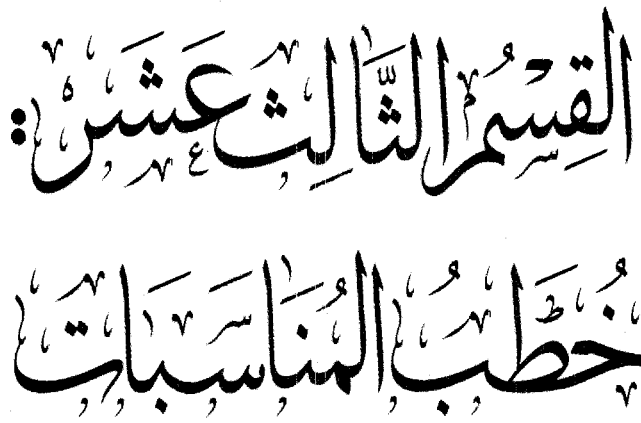 القِسْمُ الثَّالِثَ عَشَرَ:
خُطَبُ المُنَاسَبَاتِ